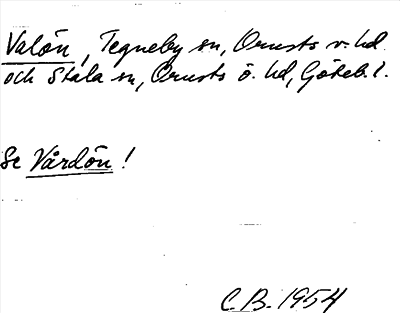 Valön, Tegneby sn, Orusts v. hd
och Stala sn, Orusts ö. hd, Göteb. l.
Se Vårdön!
C.B. 1954